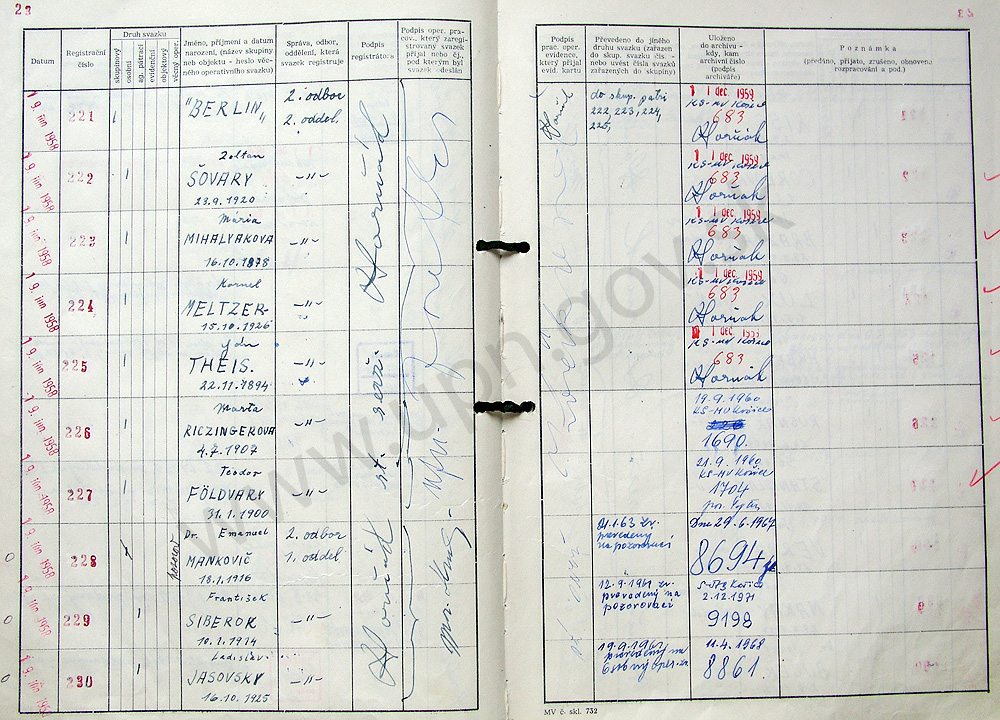 23
23
Datum
Registrační číslo
Druh svazku
skupinový
osobní
ag. pátrací
evidenční
objektový
věcný oper.
Jméno, příjmení a datum
narození, (název skupiny
neb objektu - heslo věc-
ného operativního svazku)
Správa, odbor,
oddělení, která
svazek registruje
Podpis
registrátora
Podpis oper. pra-
cov., který zaregi-
strovaný svazek
přijal nebo čj.,
pod kterým byl
svazek odeslán
Podpis
prac. oper.
evidence,
který přijal
evid. kartu
Převedeno do jiného
druhu svazku (zařazen
do skup. svazku čís. -
nebo uvést čísla svazků
zařazených do skupiny)
Uloženo
do archivu -
kdy, kam
archivní číslo
(podpis
archiváře)
Poznámka
(předáno, přijato, zrušeno, obnoveno,
rozpracování a pod.)
19. jún 1958
221
"BERLIN"
2. odbor
2. oddel.
do skup. patri
222, 223, 224,
225,
1 dec. 1959
KS-MV Košice
683
Horňák
19. jún 1958
222
Zoltan
ŠOVARY
23.9.1920
-"-
1 dec. 1959
KS-MV Košice
683
Horňák
19. jún 1958
223
Mária
MIHALYAKOVA
16.10.1878
-"-
1 dec. 1959
KS-MV Košice
683
Horňák
19. jún 1958
224
Kornel
MELTZER
15.10.1926
-"-
1 dec. 1959
KS-MV Košice
683
Horňák
19. jún 1958
225
THEIS.
22.11.1894
-"-
1 dec. 1959
KS-MV Košice
683
Horňák
19. jún 1958
226
Marta
RICZINGEROVA
4.7.1907
-"-
19.9.1960
KS-MV Košice
1690.
19. jún 1958
227
Teodor
FÖLDVARY
31.1.1900
-"-
21.9.1960
KS-MV Košice
1704
19. jún 1958
228
Dr. Emanuel
MANKOVIČ
18.1.1916
2. odbor
1. oddel.
21.1.63 zv.
prevedený
na pozorovací
Dne 29.6.1967
8694
19. jún 1958
229
František
SIBEROK
10.1.1914
-"-
12.9.1961 zv.
prevedený na
pozorovací
2.12.1971
9198
19. jún 1958
230
Ladislav
JASOVSKY
16.10.1925
-"-
prevedený na
11.4.1968
8861.
st. serž.
Horňák
MV č. skl. 732
www.upn.gov.sk